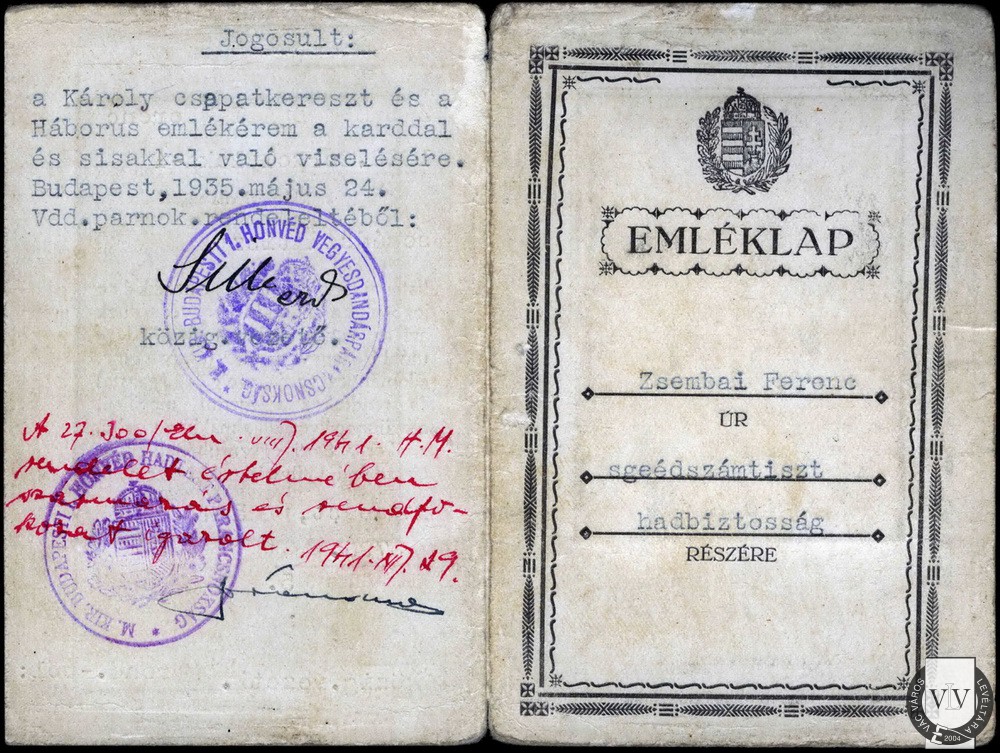 Jogosult:
a Károly csapatkereszt és a
Háborus emlékérem a karddal
és sisakkal való viselésére.
Budapest,1935.május 24.
Vdd.parnok.rendeleltéből:
közig.vezető.
BUDAPESTI 1. HONVÉD VEGYESDANDÁRPARANCSNOKSÁG
A 27.300/ 1941. H.M.
rendelet értelmében
származás és rendfo-
kozat igazolt. 1941.XII.29.
M. KIR. BUDAPESTI HONVÉD HAD
EMLÉKLAP
Zsembai Ferenc
ÚR
sgeédszámtiszt
hadbiztosság
RÉSZÉRE
VÁC VÁROS LEVÉLTÁRA
VLV
2004